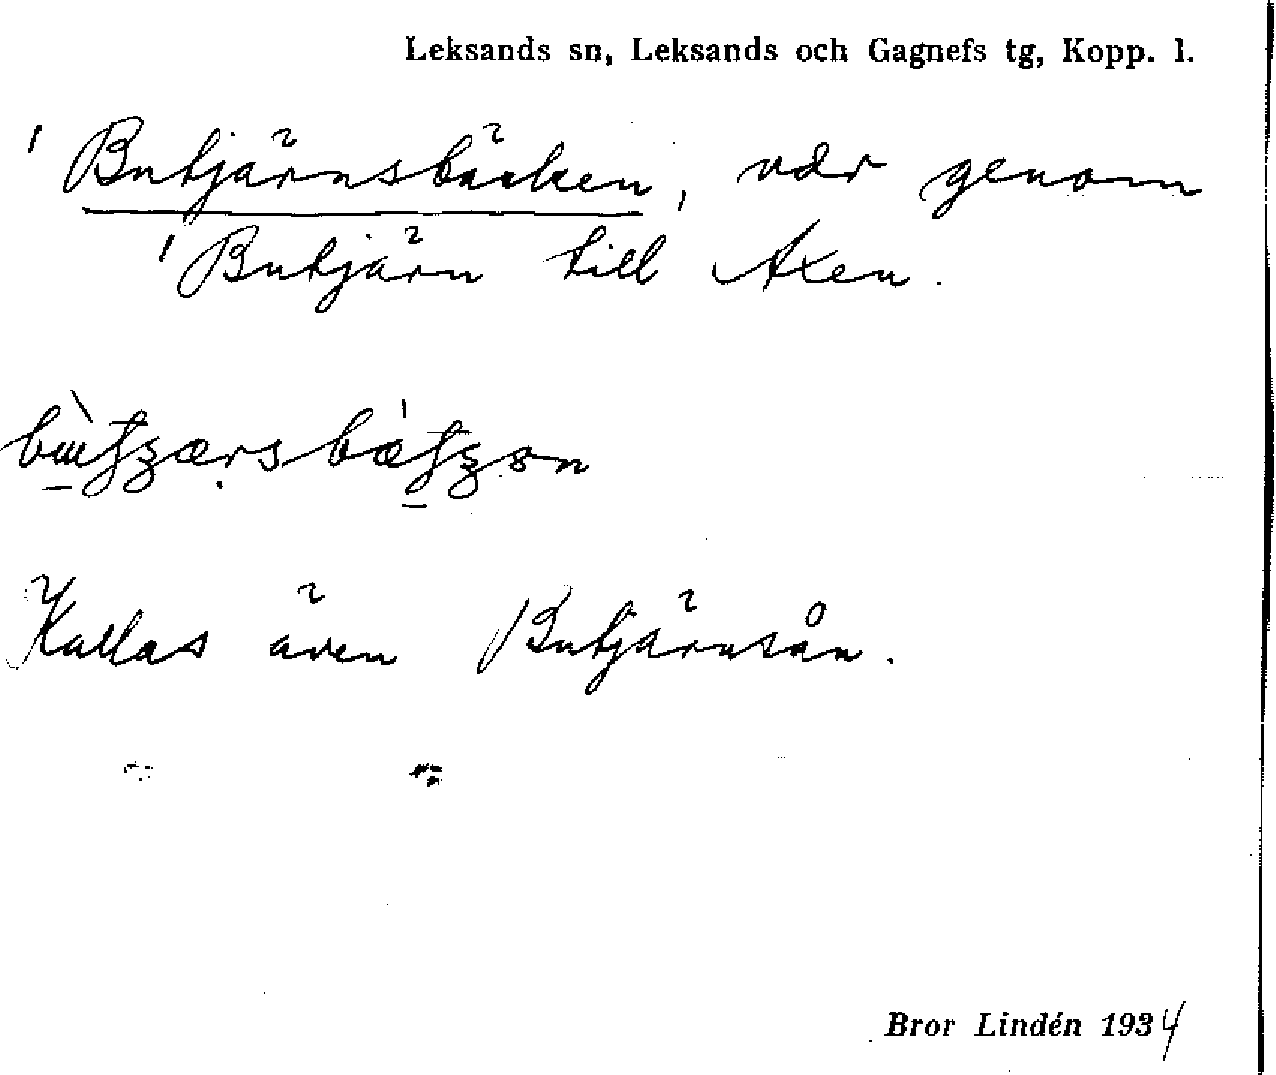 Leksands sn, Leksands och Gagnefs tg, Kopp. l.
'Butjärnsbäcken, vdr genom
'Butjärn till Axen.
Kallas även Butjärnsån.
Bror Lindén 1934